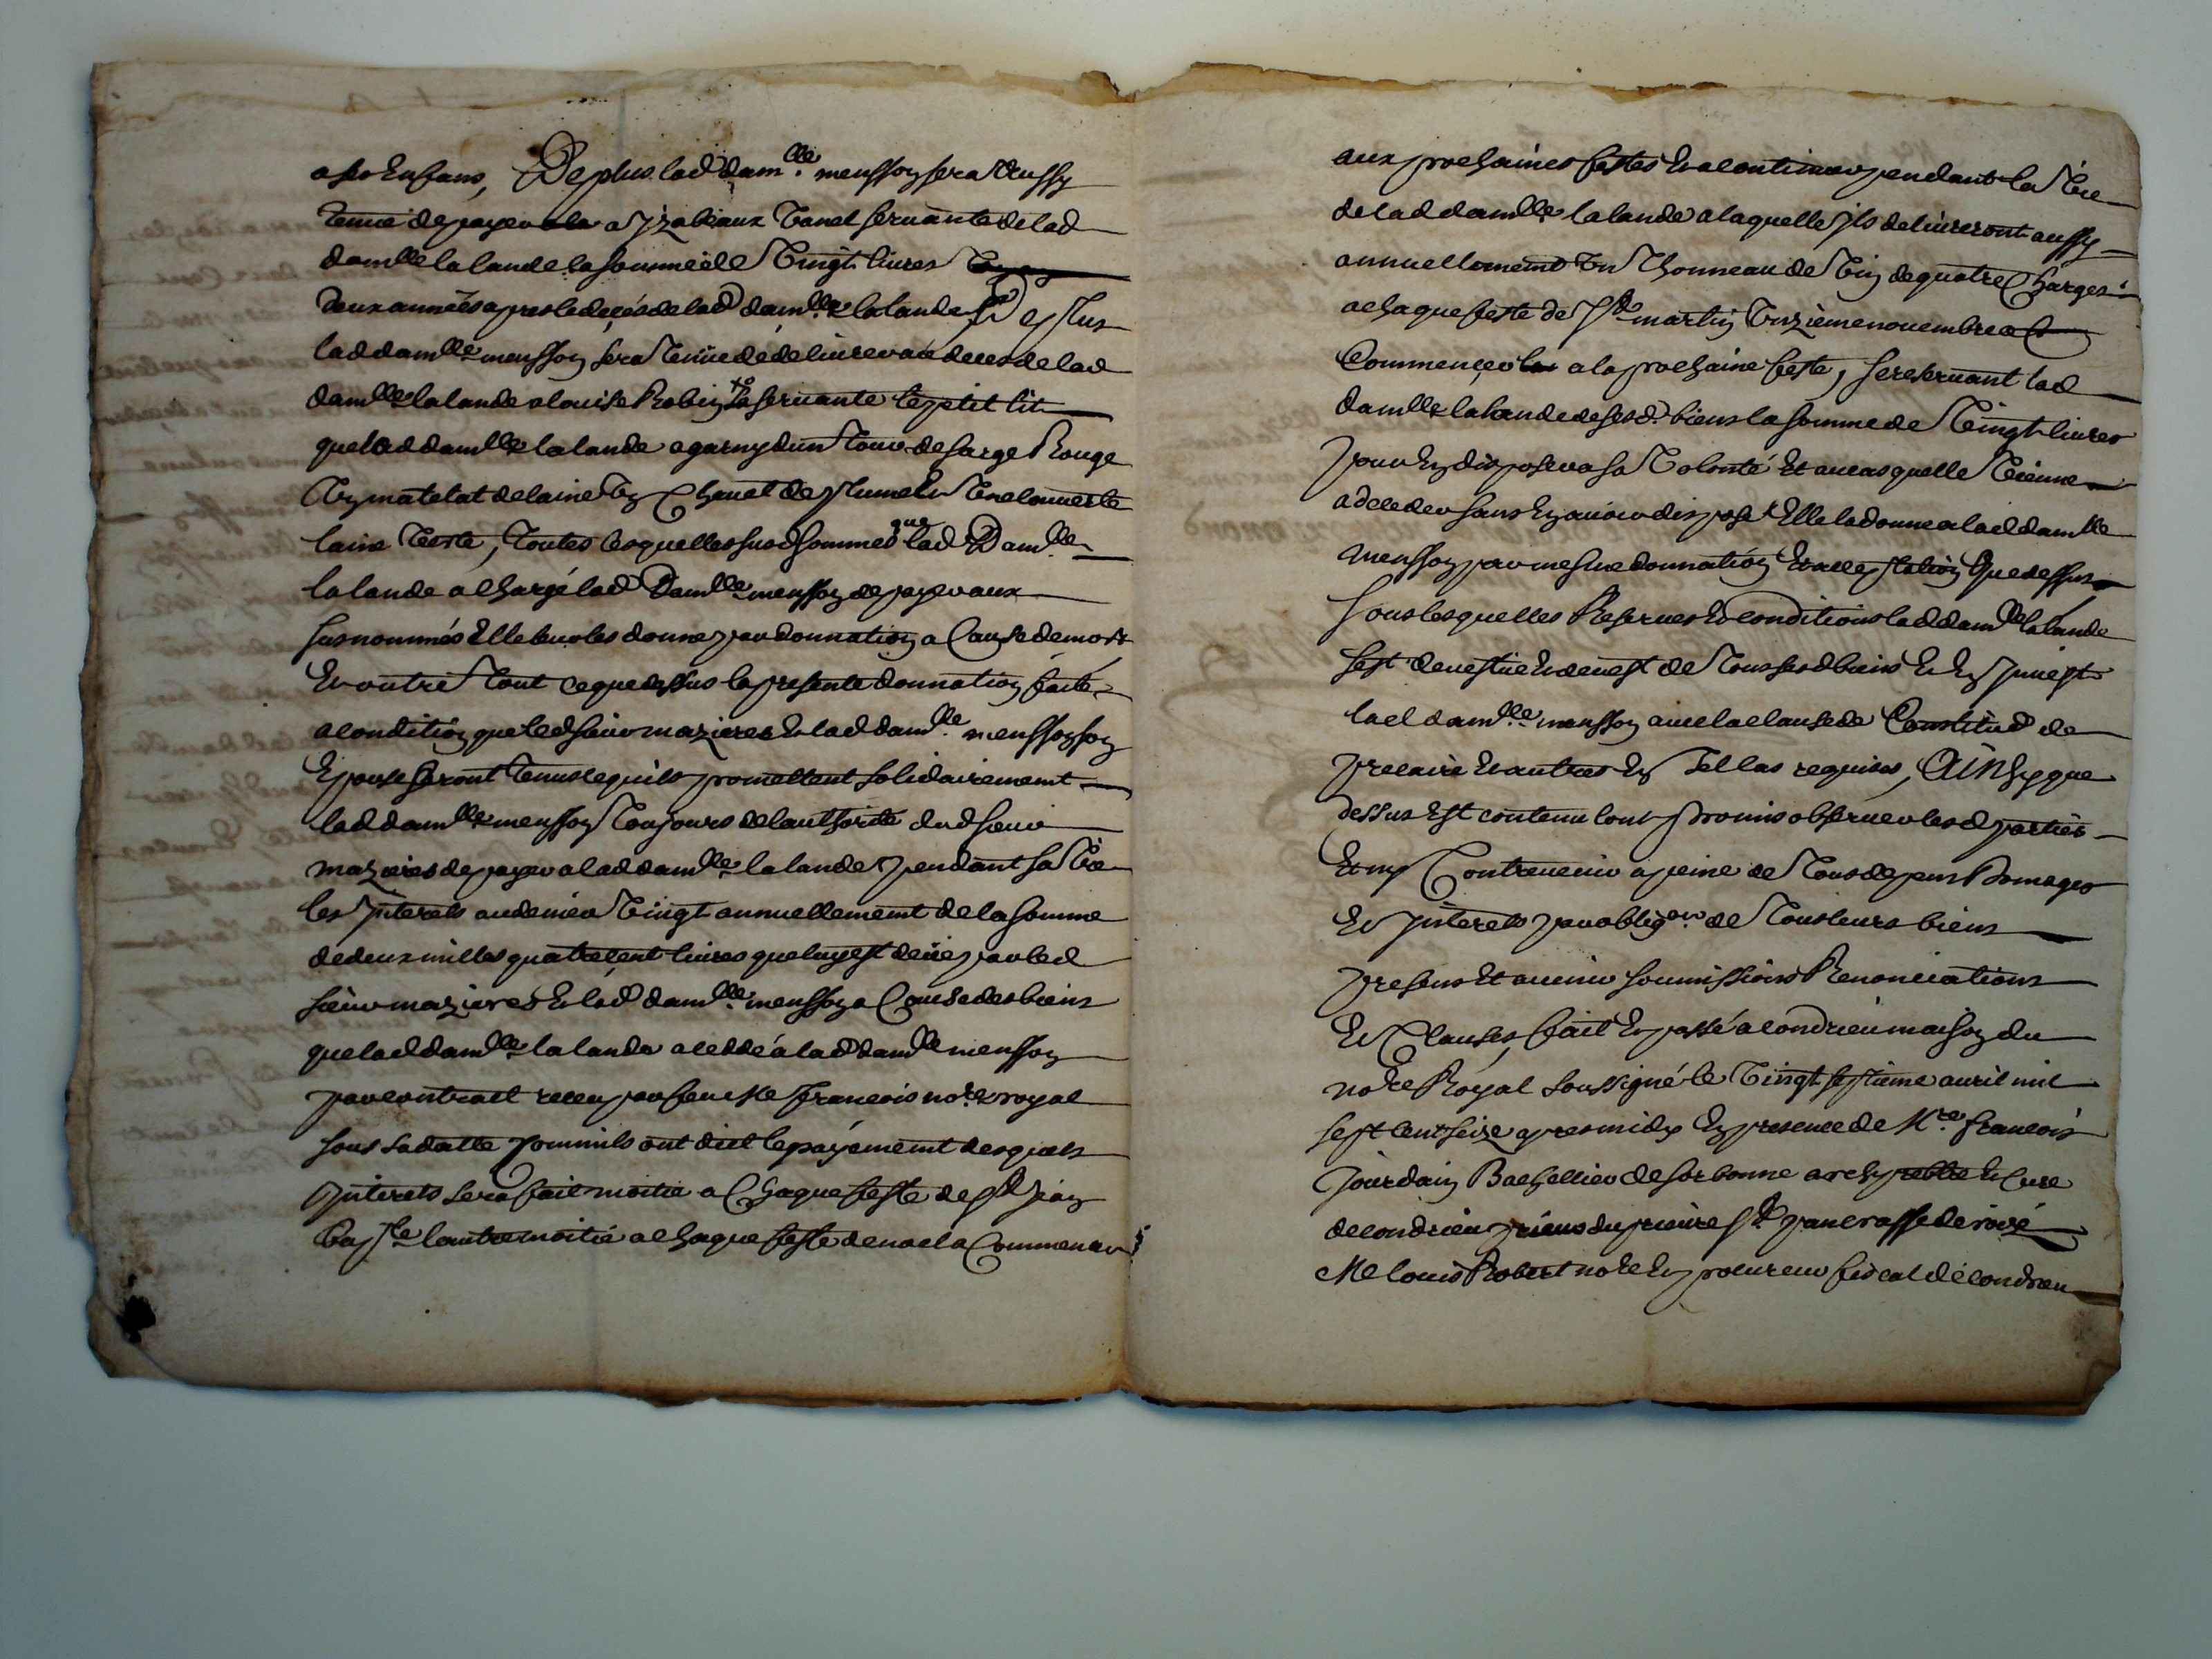 a ses Enfans, De plus lad dam.lle meussoy sera aussy
tenue de payer a yzabeaux vanel servante de lad
damlle lalande la somme de vingt livres
deux années apres le deçés de lad dam.lle lalande, De plus
lad damlle meussoy sera tenüe de delivrer au deces de lad
damlle lalande a louise Robin sa servante le petit lit
que lad damlle lalande a garny dun tour de sarge Rouge
un matelat de laine un Chevet de plume et une couverte
laine verte, toutes lesquelles susd sommes que lad Damlle
lalande a chargé lad Damlle meussoy de payer aux
susnommés Elle leur les donne par donnation a Cause de mort
Et outre tout ce que dessus la presente donnation faite
a condition que led sieur mazieres et lad dam.lle meussoy son
Epouse seront tenus ce quils promettent solidairement
lad damlle meussoy toujours de lauthorité dud sieur
mazieres de payer a lad damlle lalande pendant sa vie
les Jnterets au denier vingt annuellement de la somme
de deux milles quatre cent livres que luy est deüe par led
sieur mazieres et lad damlle meussoy a Cause des biens
que lad damlle lalande a ceddé a lad damlle meussoy
par contract receu par feu Me francois nore royal
sous sa datte comm ils ont dict le payement desquels
Jnterets sera fait moitie a Chaque feste de st Jean
bapte lautre moitié a chaque feste de noel a Commencer
aux prochaines festes et a continuer pendant la vie
de lad damlle lalande a laquelle jls delivreront aussy
annuellement un thonneau de vin de quatre Charges
a chaque feste de st martin unzieme novembre a
Commencer a la prochaine feste, se reservant lad
damlle lalande de sesd. biens la somme de vingt livres
pour en disposer a sa volonté Et au cas quelle vienne
a deceder sans en avoir disposé Elle la donne a lad damlle
meussoy par mesme donnation et acceptation que dessus
sous lesquelles Reserves et conditions lad damlle lalande
sest devestüe et devest de tous sesd biens et en Jnvest
lad damlle meussoy avec la clause de Constitud de
precaire et autres en tel cas requises, Ainsy que
dessus Est contenu lont promis observer lesd parties
Et ny Contrevenir a peine de tous depens Domages
et Jnterets par obligon. de tous leurs biens
presens Et avenir soumissions Renonciations
et Clauses, fait et passé a condrieu maison du
nore Royal soussigné le vingt septieme avril mil
sept cent seize apres midy En presence de Mre francois
Jourdain Bachellier de sorbonne archyprebtre et Curé
de condrieu prieur du prieure st pancrasse de
Me louis Robert nore et procureur fiscal de condrieu